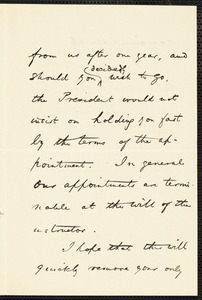 from us after one year, and
should you (decidedly) wish to go,
the President would not
insist on holding you fast
by the terms of the ap-
pointment. In general
our appointments are termi-
nable at the will of the
instructor.
I hope that this will
quickly remove your only